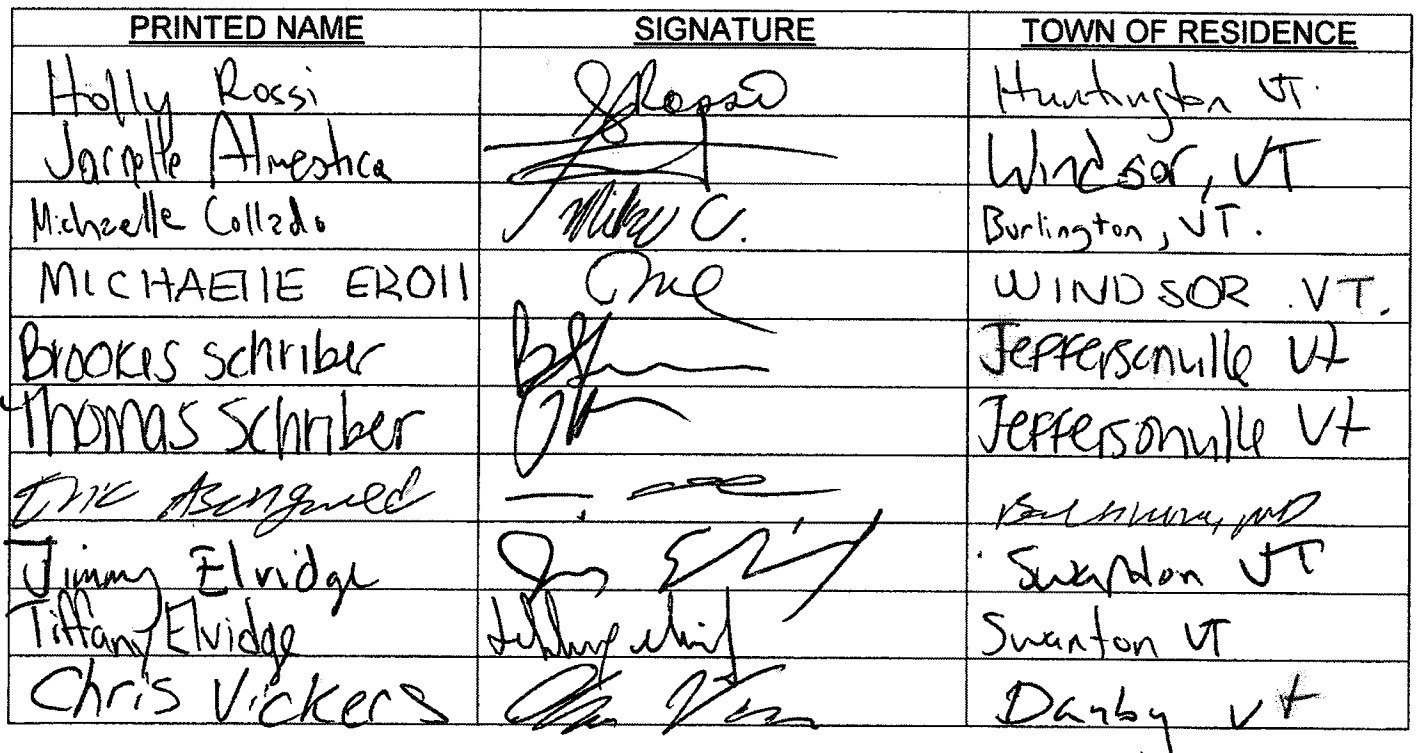 PRINTED NAME SIGNATURE TOWN OF RESIDENCE
Holly Rossi Rossi Huntington VT.
Jarnelle Almestica Windsor, VT
Michaelle Collado Mike C. Burlington, VT.
MICHAEllE EROll WINDSOR VT.
Brookes Schriber Jeffersonville Vt
Thomas Schriber Jeffersonville Vt
Eric MD
Jimmy Elvidge Swanton VT
Tiffany Elvidge Swanton VT
Chris Vickers Danby Vt